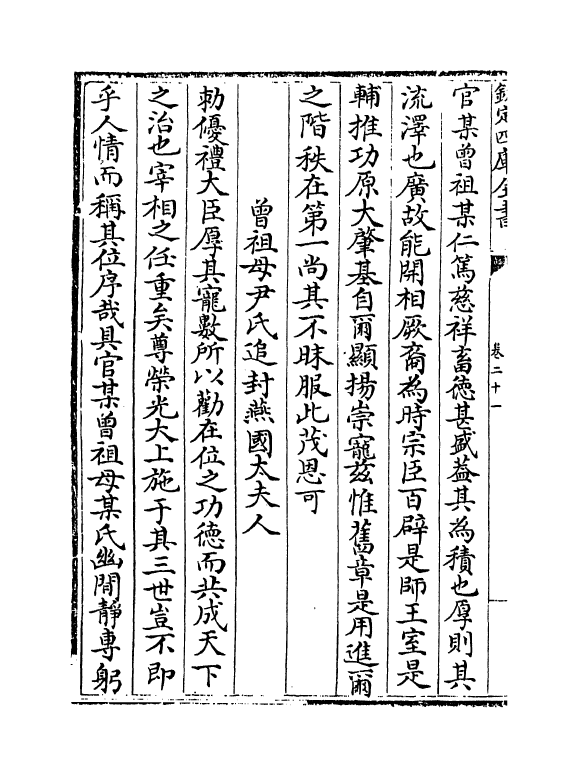 欽定四庫全書
卷二十一
官某曾祖某仁篤慈祥畜徳甚盛葢其為積也厚則其
流澤也廣故能開相厥裔為時宗臣百辟是師王室是
輔推功原大肇基自爾顯揚崇寵兹惟舊章是用進爾
之階秩在第一尚其不昧服此茂恩可
曾祖母尹氏追封燕國太夫人
勅優禮大臣厚其寵數所以勸在位之功徳而共成天下
之治也宰相之任重矣尊榮光大上施于其三世豈不即
乎人情而稱其位序哉具官某曾祖母某氏幽閒靜專躬